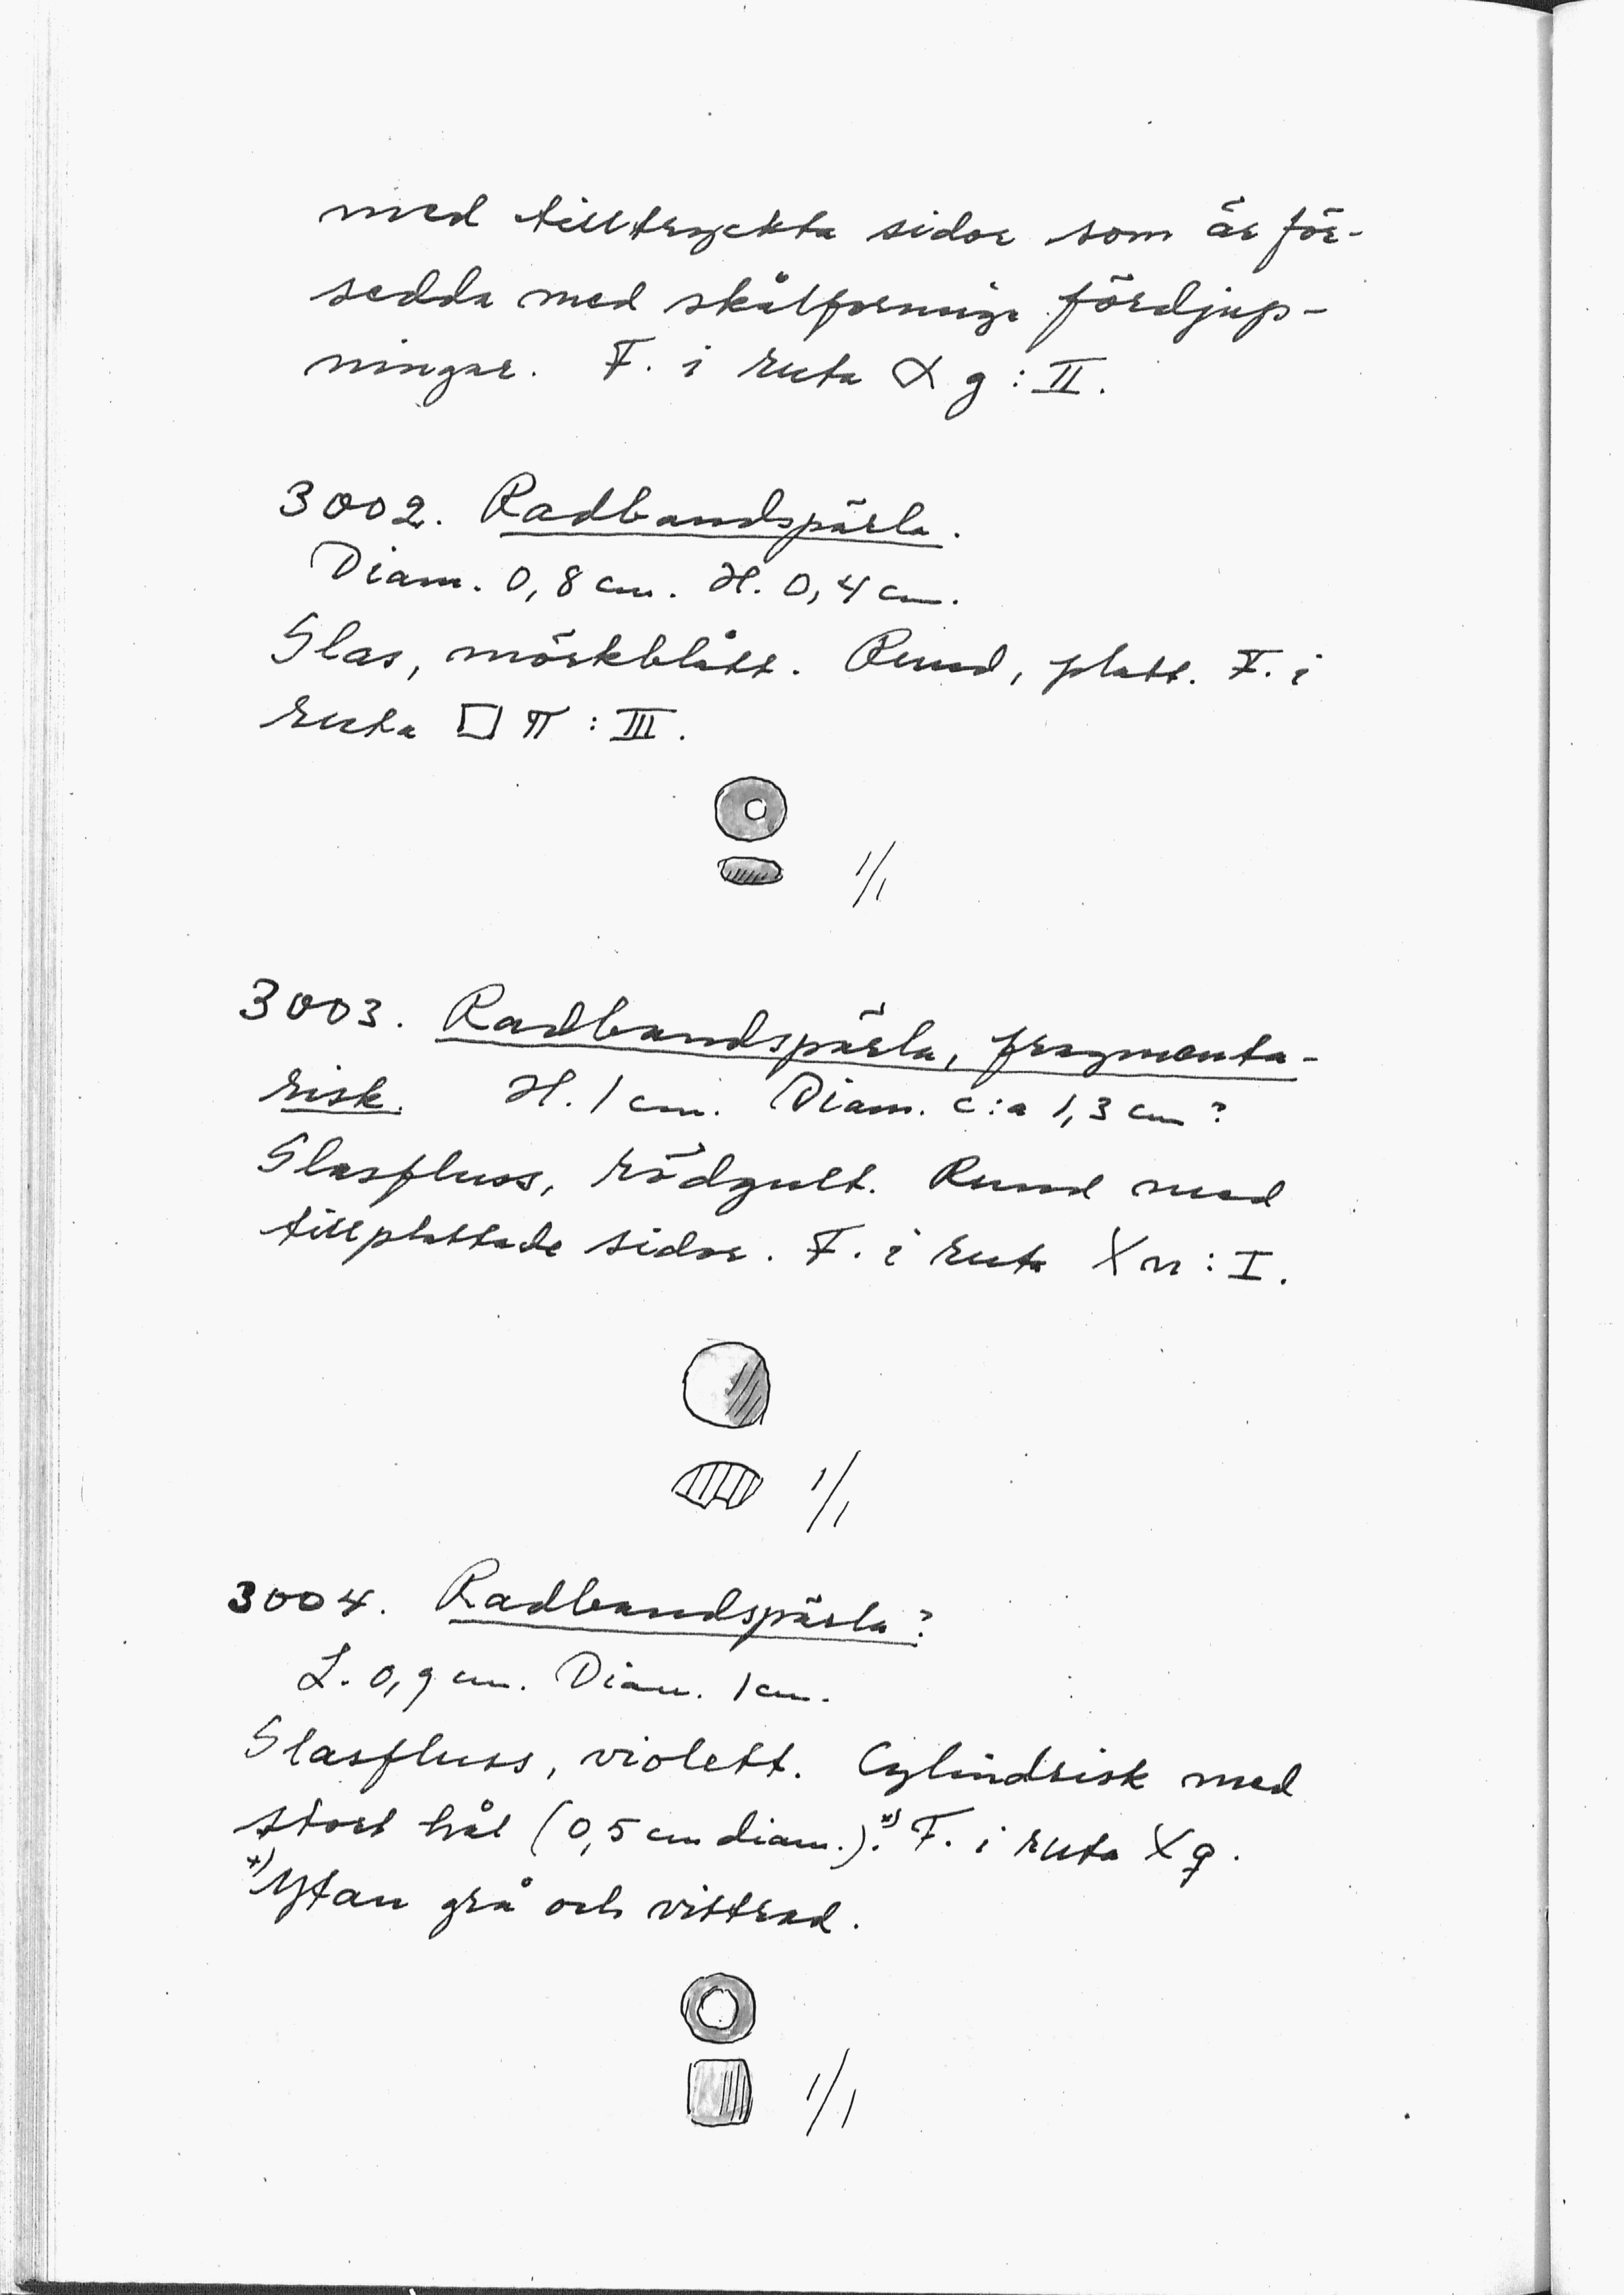 med tilltryckta sidor som är för-
sedda med skålformiga fördjup-
ningar. F. i ruta X g : II.
3002. Radbandspärla.
Diam. 0,8 cm. H. 0,4 cm.
Glas, mörkblått. Rund, platt. F. i
ruta □ π : III.
1/1
3003. Radbandspärla, fragmenta-
risk. H. 1 cm. Diam. c:a 1,3 cm?
Glasfluss, rödgult. Rund med
tillplattade sidor. F. i ruta X n : I.
1/1
3004. Radbandspärla?
L. 0,9 cm. Diam. 1 cm.
Glasfluss, violett. Cylindrisk med
stort hål (0,5 cm diam.).*) F. i ruta X g.
*) Ytan grå och vittrad.
1/1